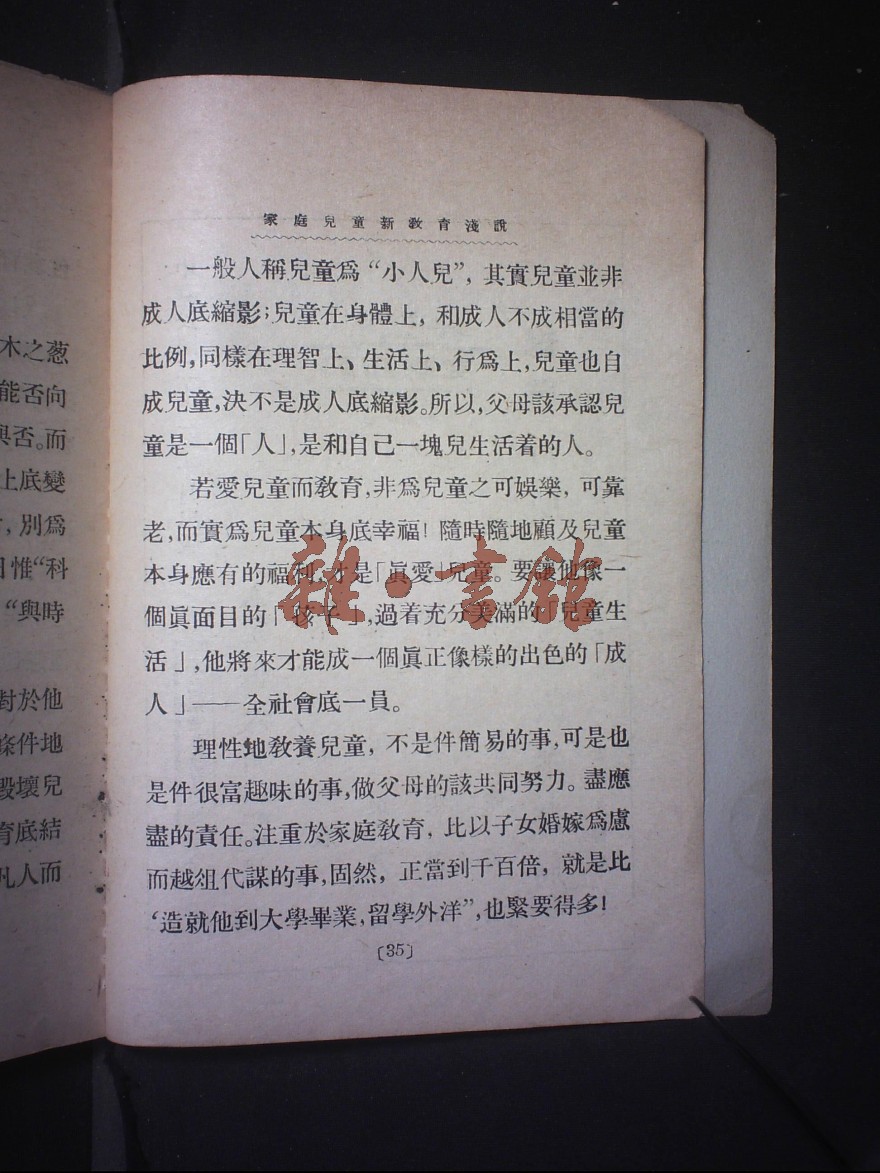 木之葱
能否向
與否。而
上底變
，別爲
惟“科
“與時
對於他
條件地
毀壞兒
育底結
凡人而
家庭兒童新教育淺說
一般人稱兒童爲“小人兒”，其實兒童並非
成人底縮影；兒童在身體上，和成人不成相當的
比例，同樣在理智上、生活上、行爲上，兒童也自
成兒童，決不是成人底縮影。所以，父母該承認兒
童是一個「人」，是和自己一塊兒生活着的人。
若愛兒童而教育，非爲兒童之可娛樂，可靠
老，而實爲兒童本身底幸福！隨時隨地顧及兒童
本身應有的福利，才是「眞愛」兒童。要讓他像一
個眞面目的「孩子」，過着充分美滿的「兒童生
活」，他將來才能成一個眞正像樣的出色的「成
人」——全社會底一員。
理性地教養兒童，不是件簡易的事，可是也
是件很富趣味的事，做父母的該共同努力。盡應
盡的責任。注重於家庭教育，比以子女婚嫁爲慮
而越俎代謀的事，固然，正當到千百倍，就是比
‘造就他到大學畢業，留學外洋”，也緊要得多！
〔35〕
雜·書館